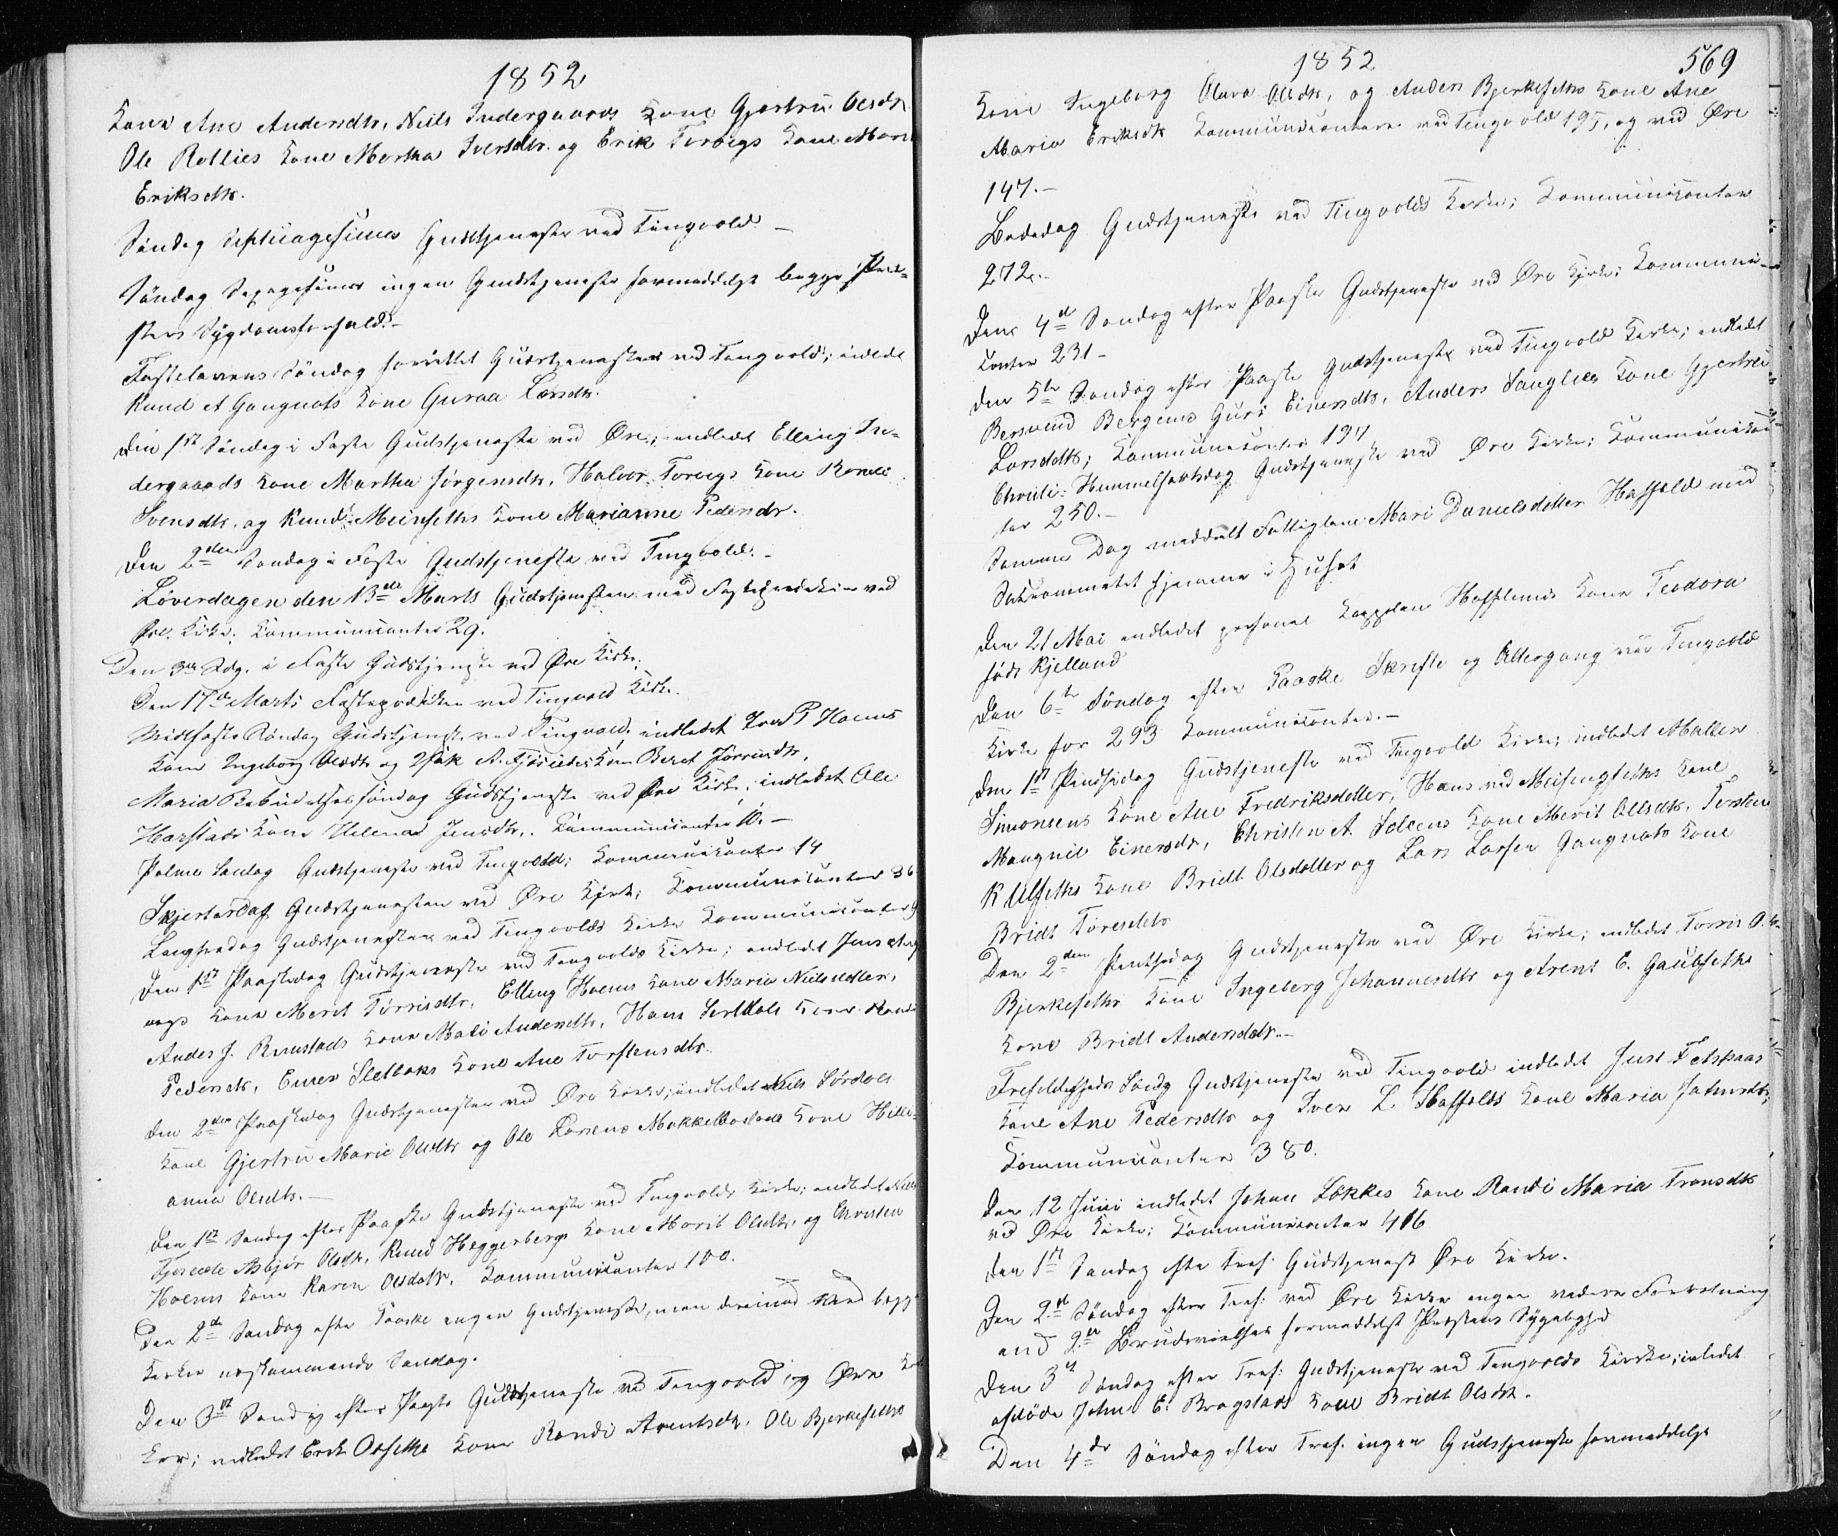 1852
Kone Ane Andersdtr, Niels Indergaards Kone Gjertru Olsdtr
Ole Rolliess Kone Martha Iversdtr. og Erik Torvigs Kone Marit
Eriksdtr.
Søndag Septuagesima Gudstjeneste ved Tingvold –
Søndag Sexagesima ingen Gudstjeneste formedelst begge Præ-
sters Sygdomsforfald.–
Fastelavens Søndag forrettet Gudstjenesten ved Tingvold; indledt
Knud A Gangnats Kone Guraa Larsdtr.
Den 1ste Søndag i Faste Gudstjeneste ved Øre; indledt Elling In-
dergaards Kone Martha Jørgensdtr, Halvor Torvigs Kone Randi
Svensdtr. og Knud Meinseths Kone Marianne Pedersdr.
Den 2den Søndag i Faste Gudstjeneste ved Tingvold.–
Løverdagen den 13de Marts Gudstjenesten med Fasteprædiken ved
Øre Kirke. Kommunicanter 29.
Den 3die Sdg. i Faste Gudstjeneste ved Øre Kirke.
Den 17de Marts Fasteprædiken ved Tingvold Kirke.
Midfaste Søndag Gudstjeneste ved Tingvold. indledet Iver P Hoems
Kone Ingeborg Olsdtr og Isak A. Fjøseides Kone Beret
Maria Bebudelsessøndag Gudstjeneste ved Øre Kirke; indledet Ole
Harstads Kone Helena Jensdtr. Kommunicanter 10.–
Palme Søndag Gudstjeneste ved Tingvold; Kommunicanter 14
Skjertorsdag Gudstjenesten ved Øre Kirke; Kommunicanter 36
Langfredag Gudstjenesten ved Tingvolds Kirke Kommunicanter
Den 1ste Paaskedag Gudstjeneste ved Tingvolds Kirke; indledet Jens
Kone Merit Tørrisdtr, Elling Hoems Kone Maria Nielsdatter,
Andes J. Rimstads Kone Mali Andersdtr, Hans Kone Randi
Pedersdtr, Einer Sletbaks Kone Ane Torstensdtr.
Den 2den Paaskedag Gudstjenesten ved Øre Kirke; indledet Niels Sørdals
Kone Gjertru Marie Olsdtr og Ole Larsens Mokkelbostads Kone Helle-
anna Olsdtr.–
Den 1ste Søndag efter Paaske Gudstjeneste ved Tingvolds Kirke; indledet
Fjøseide Asbjør Olsdtr, Knud Heggerbergs Kone Marit Olsdtr, og Christen
Hoems Kone Karen Olsdatr. Kommunicanter 100.
Den 2den Søndag efter Paaske ingen Gudstjeneste, men derimod ved begge
Kirker næstkommende Søndag.
Den 3die Søndag efter Paaske Gudstjeneste ved Tingvold og Øre
indledet Erik Orseths Kone Randi Arentsdtr. Ole Bjerkeseths
1852
569
Kone Ingeborg Olava Olsdtr, og Anders Bjerkeseths Kone Ane
Maria Eriksdtr Kommunicantere ved Tingvold 195, og ved Øre
147.–
Bededag Gudstjeneste ved Tingvolds Kirke; Kommunicanter
272.–
Den 4de Søndag efter Paaske Gudstjeneste ved Øre Kirke; Kommuni-
canter 231–
Den 5te Søndag efter Paaske Gudstjeneste ved Tingvold Kirke; indledet
Bersvend Bergems Guri Einersdtr, Anders Sanglies Kone Gjertru
Larsdtr; Kommunicanter 197
Christi Himmelfartsdag Gudstjeneste ved Øre Kirke; Kommunican-
ter 250.–
Samme Dag meddelt Fattiglem Mari Danielsdatter Hafsold med
Sakramentet hjemme i Huset
Den 21 Mai indledet personel Kappelan Hofflunds Kone Teodora
født Kjelland
Den 6te Søndag efter Paaske Skrifte og Altergang ved Tingvold
Kirke for 293 Kommunicanter.–
Den 1ste Pindsedag Gudstjeneste ved Tingvold Kirke; indledet Maller
Simonsens Kone Ane Fredriksdatter, Hans ved Meisingseths Kone
Mangnil Einersdr, Christen A. Soleens Kone Merit Olsdtr, Torsten
K Ulseths Kone Bridt Olsdatter og Lars Larsen Gangnats Kone
Bridt Toresdtr
Den 2den Pindsedag Gudstjeneste ved Øre Kirke; indledet Torris O.
Bjerkeseths Kone Ingeberg Johannesdtr og Arent E. Gaubseths
Kone Bridt Andersdatr.–
Trefoldigheds Søndg Gudstjeneste ved Tingvold indledet Just Fetskaas
Kone Ane Pedersdtr og Iver L Hafsolds Kone Maria
Kommunicanter 380.
Den 12 Juni indledet Johan Løkkes Kone Randi Maria Tronsdtr
ved Øre Kirke; Kommunicanter 416
Den 1ste Søndag efter Tref: Gudstjenest Øre Kirke.
Den 2den Søndag efter Tref: ved Øre Kirke ingen videre Forretning
end 2de Brudevielser formedelst Præstens Sygelighed
Den 3die Søndag efter Tref: Gudstjeneste ved Tingvolds Kirke; inledet
afdøde John E. Bragstads Kone Bridt Olsdtr.
Den 4de Søndag efter Tref. ingen Gudstjeneste formedelst